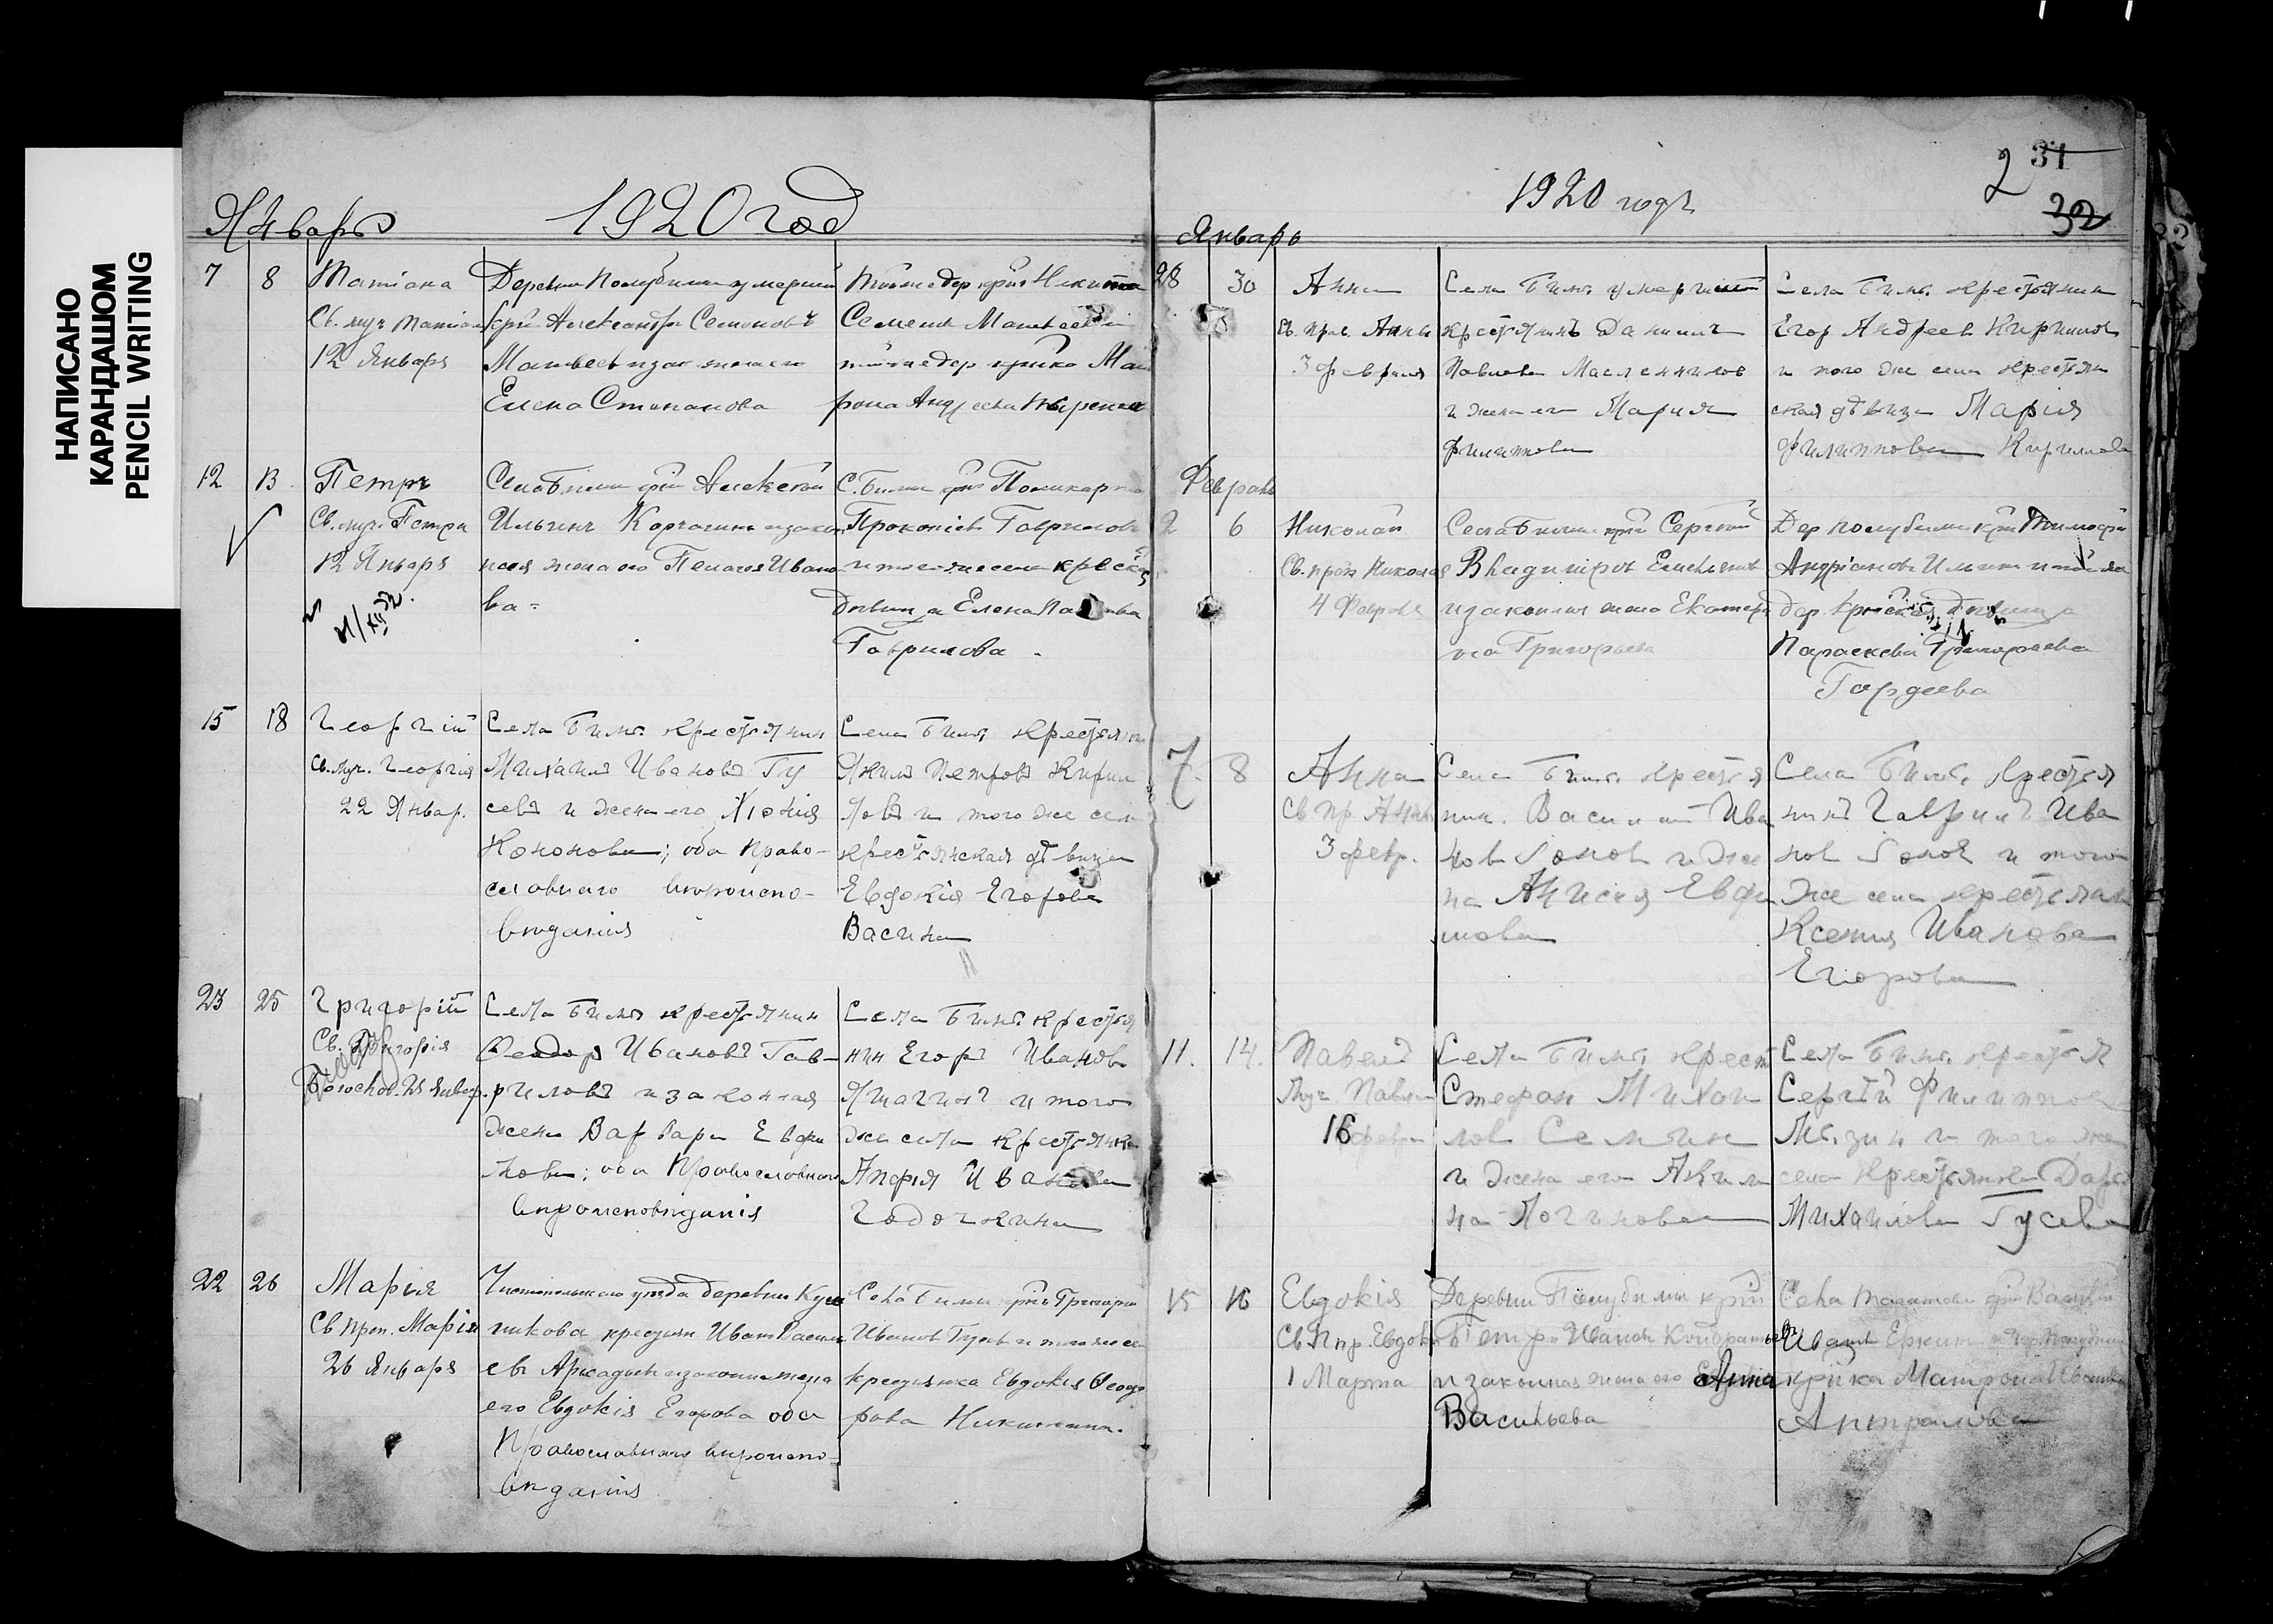 НАПИСАНО
КАРАНДАШОМ
PENCIL WRITING
Январь
1920 год
7 8 Татiана
Св. муч Татiан
12 Января
Деревни Полубимы умерший
крй Александръ Семеновъ
Матвеевъ и зак жена его
Елена Степанова
тойже дер крй Никита
Семенов Матвеев и
тойже дер крйка Мат
рона Андреева
12 13 Петръ
Св. муч. Петра
12 Января
Села Билы крй Алексей
Ильинъ Карчагинъ и закон
ная жена его Пелагея Ивано
ва =
С. Билы крй Поликарп
Прокопiев Гаврилов
и того же села крест
девица Елена
Гаврилова
15 18 Георгiй
Св. муч. Георгiя
22 Январ.
Села Билы крестьянин
Михаилъ Ивановъ Гу
севъ и жена его Хiонiя
Кононова; оба право-
славнаго вероиспо-
веданiя
Села Билы крестьянин
Якимъ Петровъ Кирил
ловъ и того же села
крестьянская девица
Евдокiя Егорова
Васина
23 25 Григорiй
Св. Григорiя
Богослов. 25 Январ.
Села Билы крестьянин
Феодоръ Ивановъ Гав-
риловъ и законная
жена Варвара Евфи
мова; оба Православнаго
вероисповеданiя
Села Билы крестья
нин Егоръ Иванов
и того
же села крестьянка
Анфiя Иванова
22 26 Марiя
Св прп. Марiи
26 Января
Чистопольскаго уезда деревни
крестьян. Иван Василь
ев Аркадьев и законная жена
его Евдокiя Егорова оба
Православнаго вероиспо-
веданiя
Села Билы крй Григорий
Иванов Гусев и того же се
крестьянка Евдокiя Феодо
рова Никитина.
1920 годъ
2 31
32
Январь
28 30 Анна
Св. прав. Анны
3 февраля
Села Билы умершiй
крестьянинъ Данiилъ
Павловъ Масленников
и жена его Марiя
Филиппова
Села Билы крестьянин
Егор Андреев Кирилов
и того же села крестьян
ская девица Марiя
Филиппова Кирилова
Февраль
2 6 Николай
Св. прп Николая
4 Февраля
Села Билы крй Сергей
Владимiров Емельянов
и законная жена Екатери
на Григорьева
Дер Полубимы крй Тимофей
Андрiанов Ильин и той же
дер. крйская девица
Параскева Григорьева
Гордеева
7. 8 Анна
Св пр. Анны
3 февр.
Села Билы крестья
нин. Василiй Ива
нов и же
на Анисiя Евфи
мова
Села Билы крестья
нинъ Гаврiилъ Ива
нов и того
же села крестьянка
Ксения Иванова
Егорова
11. 14. Павелъ
Муч Павла
16 феврал
Села Билы крест
Стефан Михаи
лов Семкин
и жена его Акили
на Логинова
Села Билы крестья
Сергiй Филиппов
и того же
села крестьянка Дарья
Михаилова Гусева
15 16 Евдокiя
Св. Пр. Евдок
1 Марта
Деревни Полубимы крй
Петръ Иванов Кондратьевъ
и законная жена его Анна
Васильева
Села крй Василий
Иванов
крйка Матрона Иванова